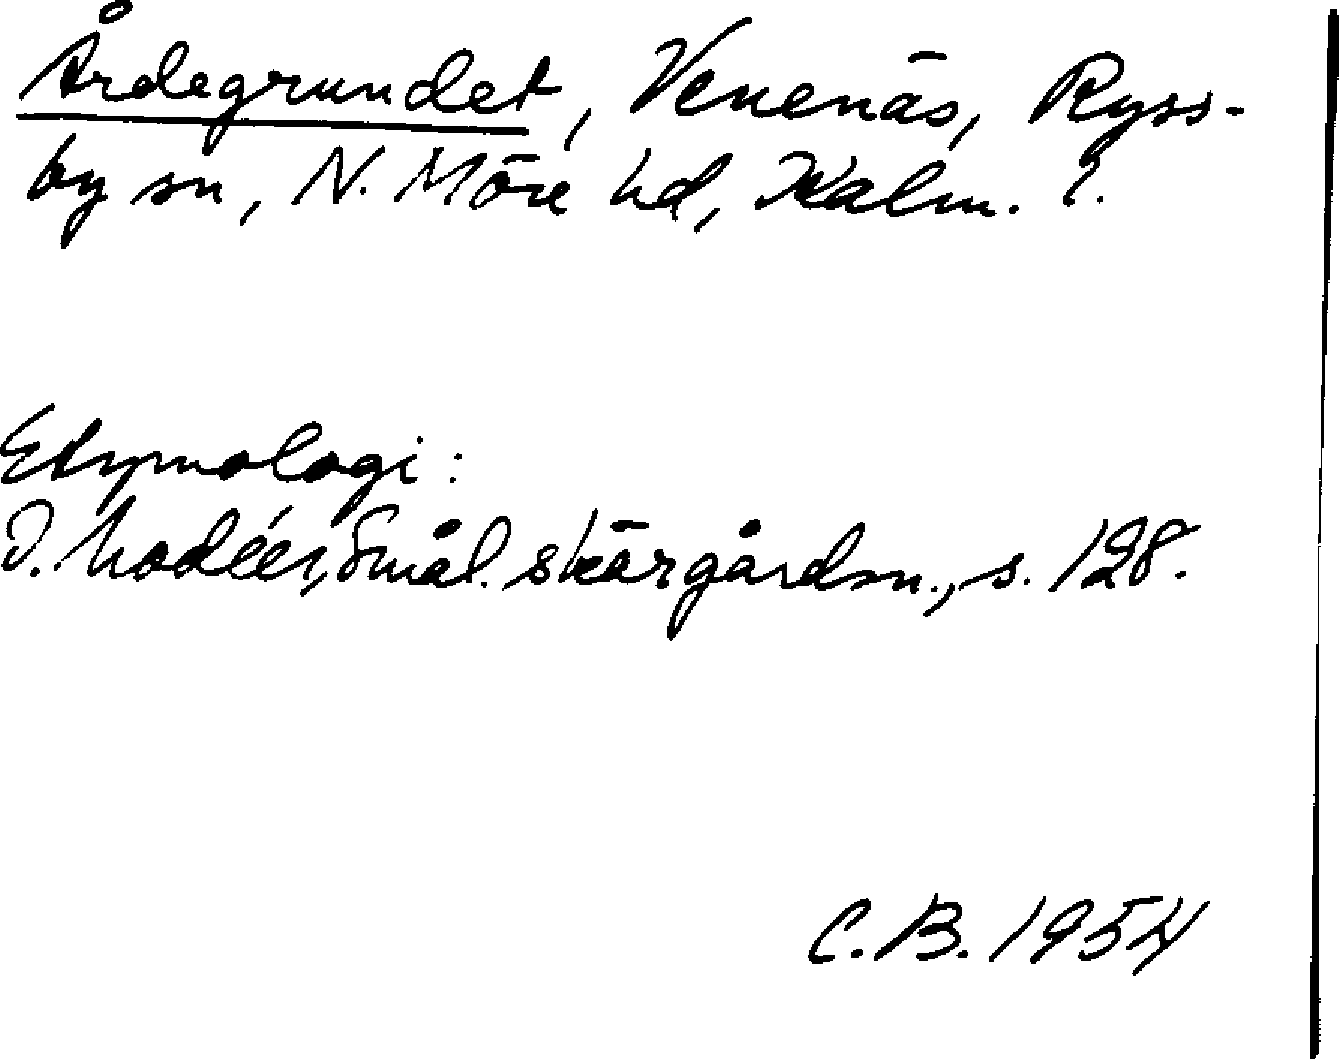 Årdegrundet, Venenäs, Ryss-
by sn, N. Möre hd, Kalm. l.
Etymologi:
I. Modéer, Smål. skärgårdsn., s. 128.
C.B. 1954